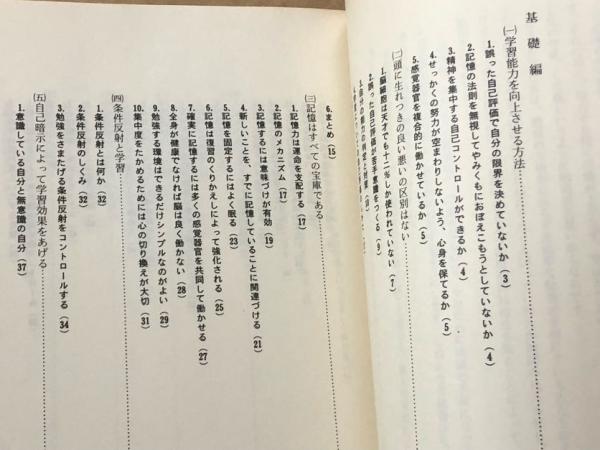 基礎編
㈠学習能力を向上させる方法
1. 誤った自己評価で自分の限界を決めていないか（3）
2. 記憶の法則を無視してやみくもにおぼえこもうとしていないか（4）
3. 精神を集中する自己コントロールができるか（4）
4. せっかくの努力が空まわりしないよう、心身を保てるか（5）
5. 感覚器官を複合的に働かせているか（5）
㈡頭に生れつきの良い悪いの区別はない
1. 脳細胞は天才でも十二％しか使われていない（7）
2. 誤った自己評価が苦手意識をつくる（9）
6. まとめ（15）
㈢記憶はすべての宝庫である
1. 記憶力は運命を支配する（17）
2. 記憶のメカニズム（17）
3. 記憶するには意味づけが有効（19）
4. 新しいことを、すでに記憶していることに関連づける（21）
5. 記憶を固定するにはよく眠る（23）
6. 記憶は復習のくりかえしによって強化される（25）
7. 確実に記憶するには多くの感覚器官を共同して働かせる（27）
8. 全身が健康でなければ脳は良く働かない（28）
9. 勉強する環境はできるだけシンプルなのがよい（29）
10. 集中度をたかめるためには心の切り換えが大切（31）
㈣条件反射と学習
1. 条件反射とは何か（32）
2. 条件反射のしくみ（32）
3. 勉強をさまたげる条件反射をコントロールする（34）
㈤自己暗示によって学習効果をあげる
1. 意識している自分と無意識の自分（37）